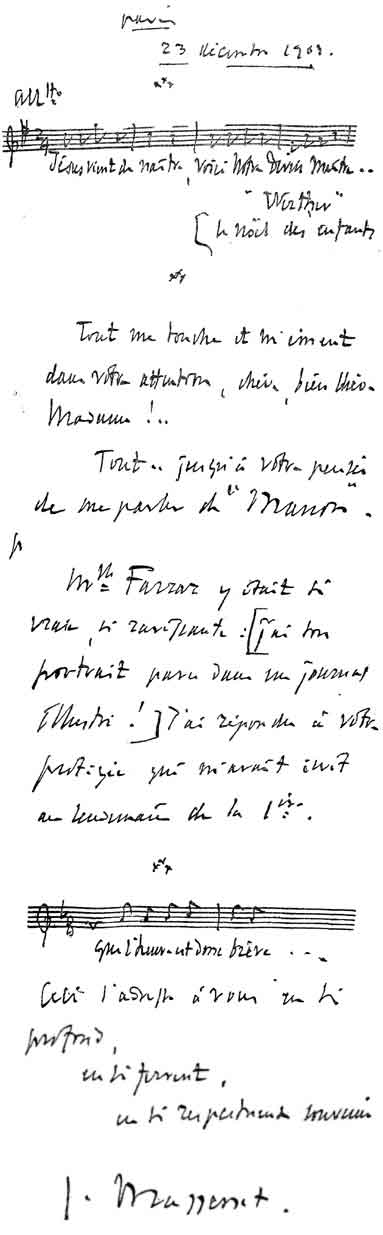 Paris
23 décembre 1908.
All^tto
Jésus vient de naître, voici Notre divin Maître..
"Werther"
[le Noël des enfants
Tout me touche et m'émeut
dans votre attention, chère, bien chère
Madame !..
Tout.. jusqu'à votre pensée
de me parler de "Manon".
M^lle Farrar y était si
vraie, si ravissante : [j'ai son
portrait paru dans un journal
illustré !] J'ai répondu à votre
protégée qui m'avait écrit
au lendemain de la 1^ère.
Que l'heure est donc brève ...
Ceci s'adresse à vous en si
profond,
en si fervent,
en si respectueux souvenir
J. Massenet.